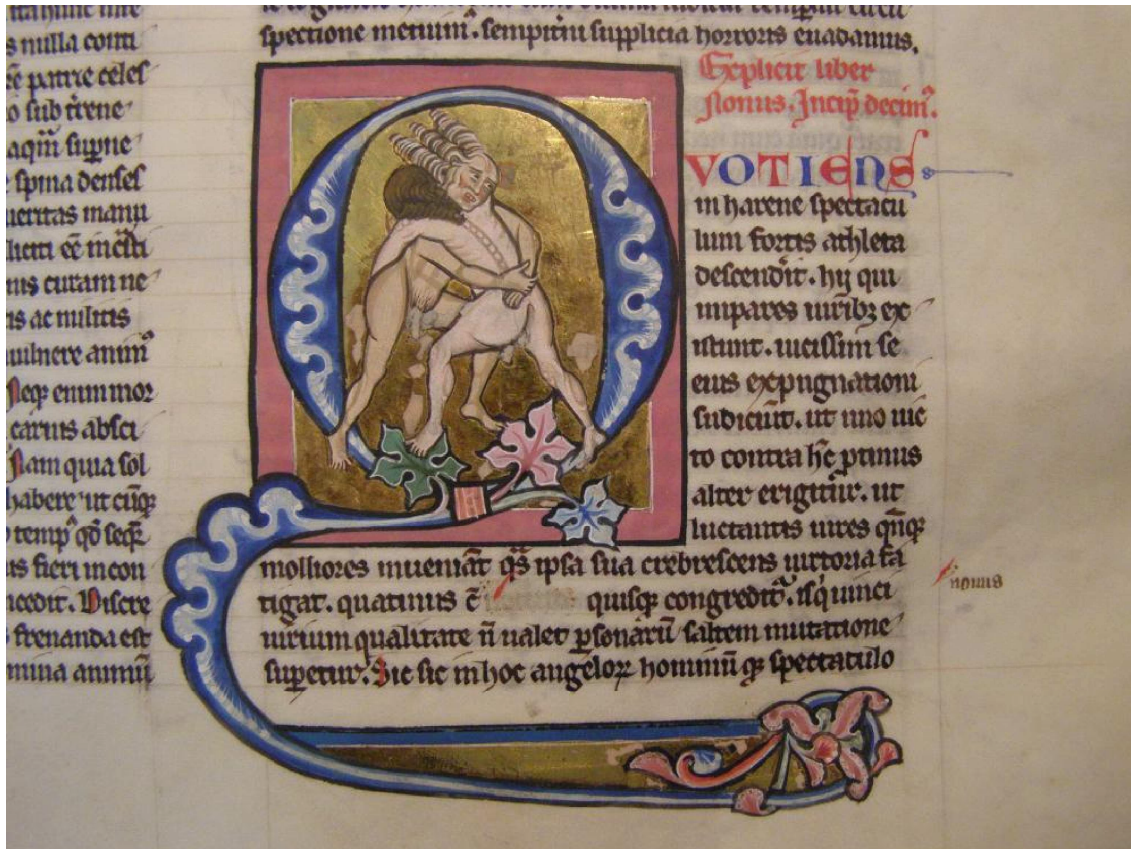 s nulla conti
patrie celes
sub trene
spina denses
ueritas manu
curam ne
is ac militis
uulnere anim̄
Neq; enim mor
carius absci
Nam quia sol
habere ut cūq;
temp̄ qđ seq̄
us fieri incon
ncedit. Discre
frenanda est
mina animū
spectione metiuntˢ. sempitni supplicia horroris euadamus.
Explicit liber
Nonus. Incip̄ decim᾿.
QVOTIENS
in harene spectacu
lum fortis athleta
descendit. hii qui
impares uiribꝫ ex
istunt. uicissim se
eius expugnationi
subiciūt. ut uno uic
to contra hc̄ ptinus
alter erigitur. ut
luctantis uires qnq;
molliores inueniat q̄s ipsa sua crebrescens uictoria fa
tigat. quatinus c̄ quisq; congredit᾿. is q uinci
uirium qualitate n̄ ualet psonarū saltem mutatione
supetur. Sic sic in hoc angeloꝝ hominū q; spectaculo
nouus